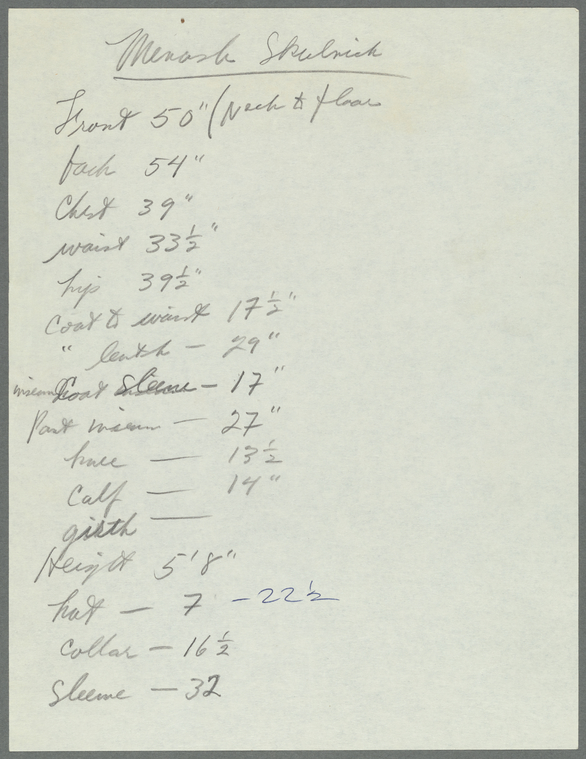 Menash Skulnick
Front 50" (Neck to floor
back 54"
Chest 39"
waist 33 1/2"
hip 39 1/2"
Coat to waist 17 1/2"
" lenth — 29"
inseam Coat Sleeve — 17"
Pant inseam — 27"
knee — 13 1/2
Calf — 14"
girth —
Height 5'8"
hat — 7 — 22 1/2
collar — 16 1/2
Sleeve — 32